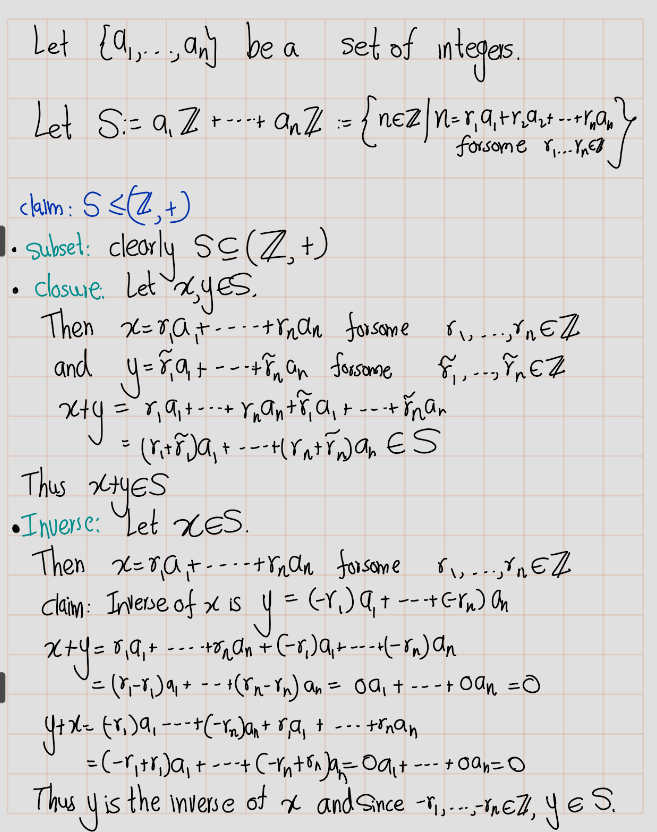 Let {a₁,...,aₙ} be a set of integers.
Let S:= a₁ℤ+----+aₙℤ := {n∈ℤ | n=r₁a₁+r₂a₂+--+rₙaₙ
forsome r₁...rₙ∈ℤ}
claim: S≤(ℤ,+)
• subset: clearly S⊆(ℤ,+)
• closure: Let x,y∈S.
Then x=r₁a₁+----+rₙaₙ forsome r₁,...,rₙ∈ℤ
and y=r̃₁a₁+---+r̃ₙaₙ forsome r̃₁,...,r̃ₙ∈ℤ
x+y = r₁a₁+---+rₙaₙ+r̃₁a₁+---+r̃ₙaₙ
= (r₁+r̃₁)a₁+---+(rₙ+r̃ₙ)aₙ ∈ S
Thus x+y∈S
• Inverse: Let x∈S.
Then x=r₁a₁+----+rₙaₙ forsome r₁,...,rₙ∈ℤ
claim: Inverse of x is y = (-r₁)a₁+---+(-rₙ)aₙ
x+y= r₁a₁+----+rₙaₙ+(-r₁)a₁+---+(-rₙ)aₙ
= (r₁-r₁)a₁+--+(rₙ-rₙ)aₙ = 0a₁+---+0aₙ =0
y+x= (-r₁)a₁---+(-rₙ)aₙ+r₁a₁+---+rₙaₙ
=(-r₁+r₁)a₁+---+(-rₙ+rₙ)aₙ=0a₁+---+0aₙ=0
Thus y is the inverse of x and since -r₁,...,-rₙ∈ℤ, y∈S.